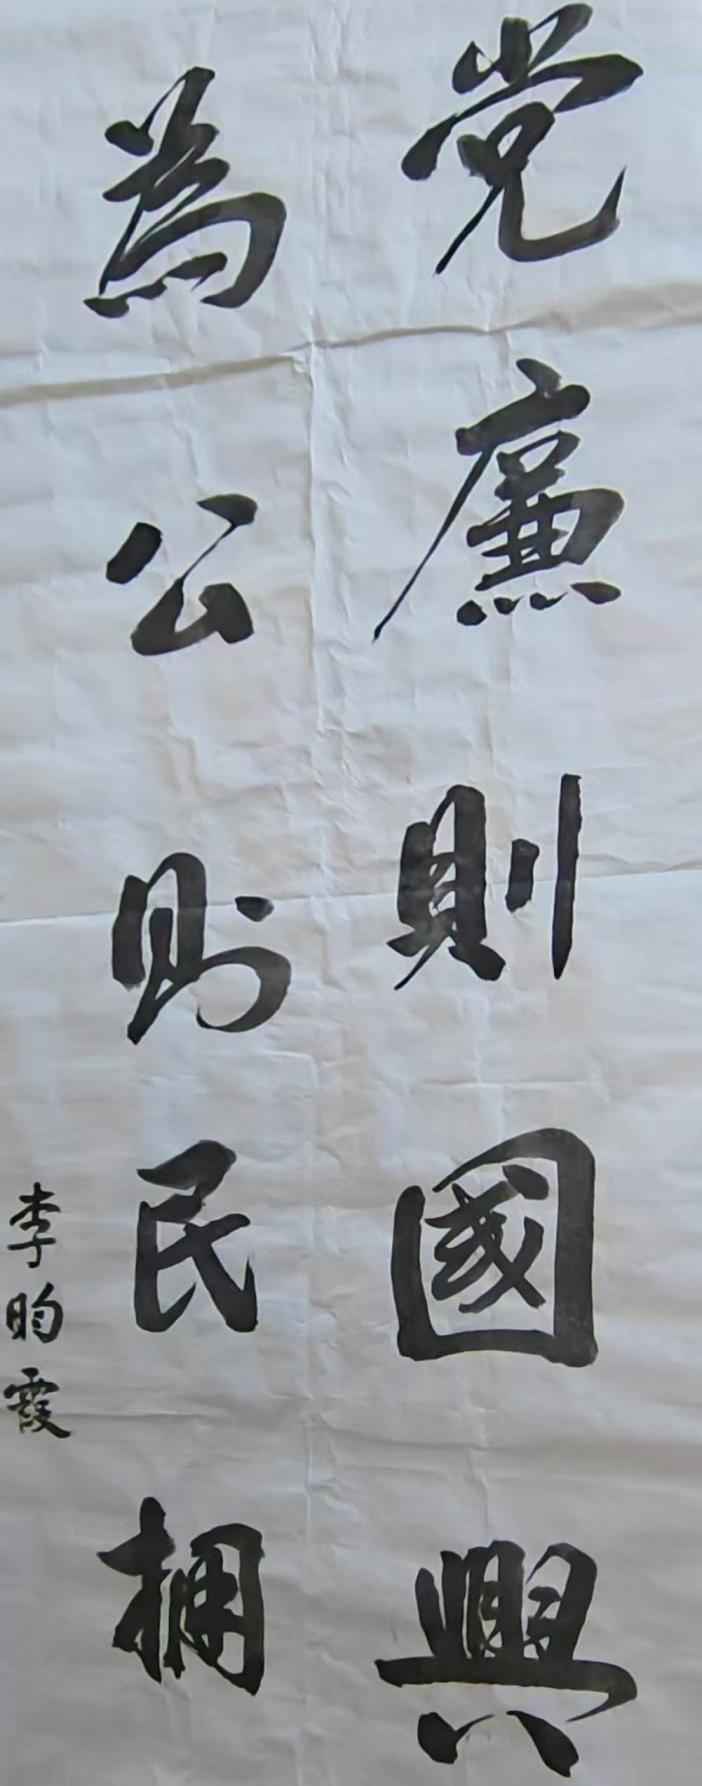 党廉則國興
為公则民拥
李昀霞